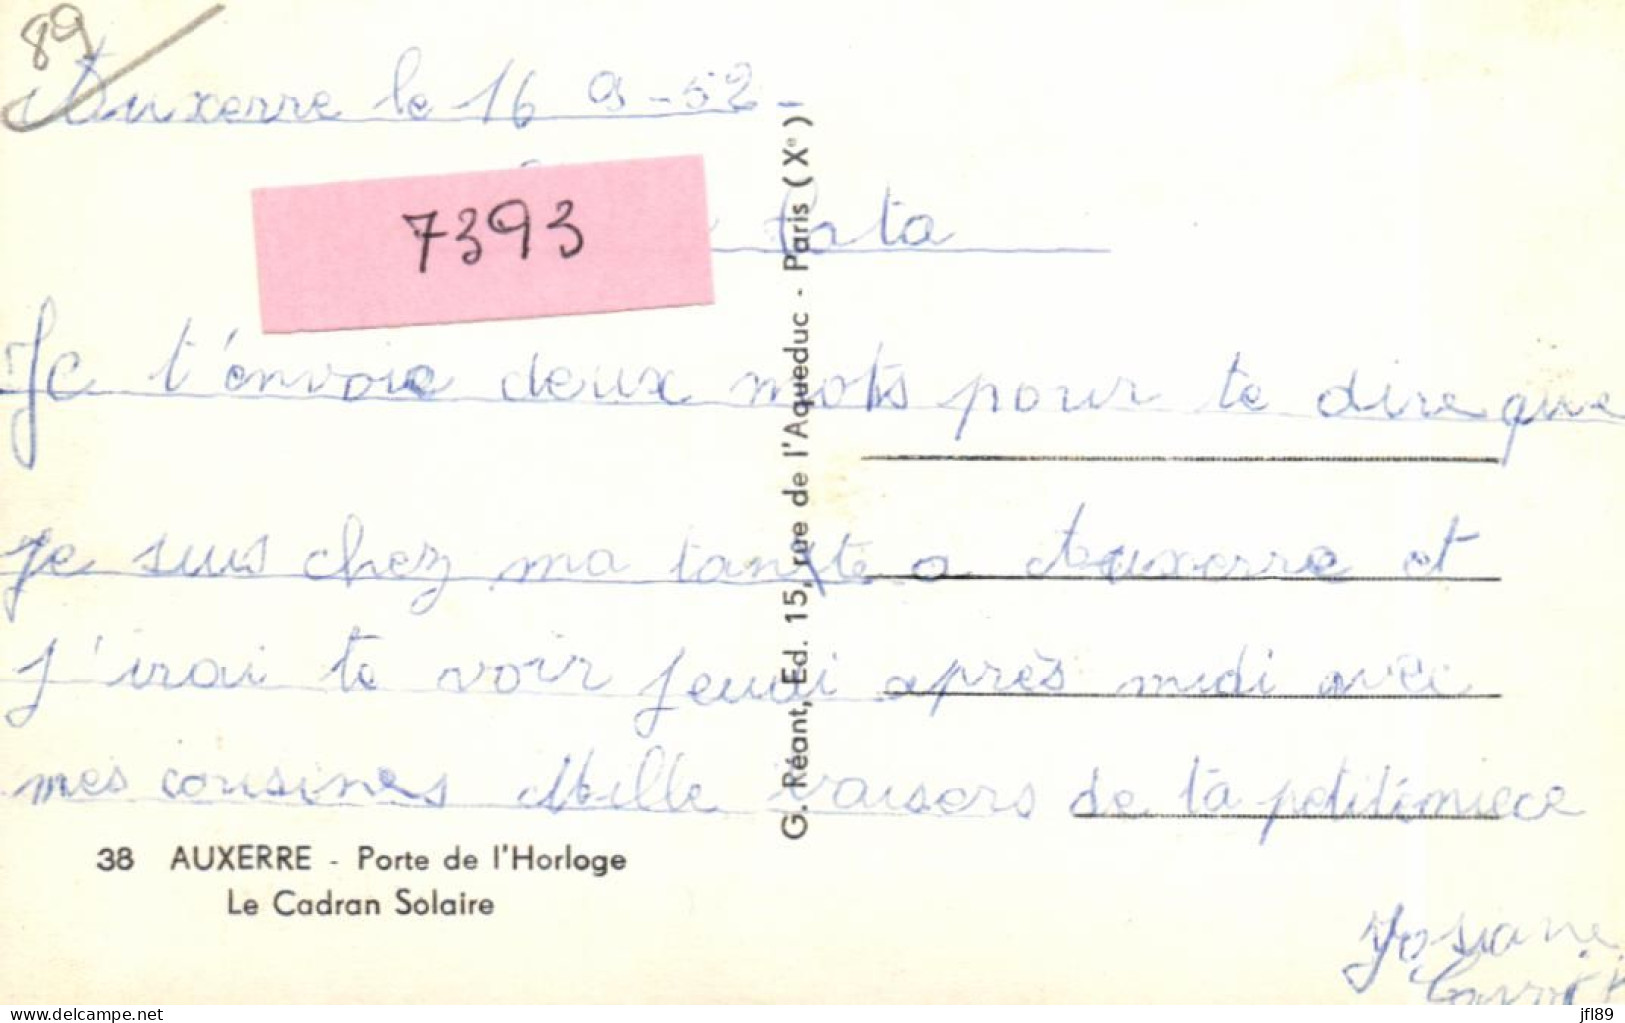 89
Auxerre le 16 9-52-
7393
tata
Je t'envoie deux mots pour te dire que
je suis chez ma tante a Auxerre et
j'irai te voir jeudi après midi avec
mes cousines Mille baisers de ta petite niece
38 AUXERRE - Porte de l'Horloge
Le Cadran Solaire
Josiane
G. Réant, Ed. 15, rue de l'Aqueduc - Paris (Xe)
delcampe.net
jfl89